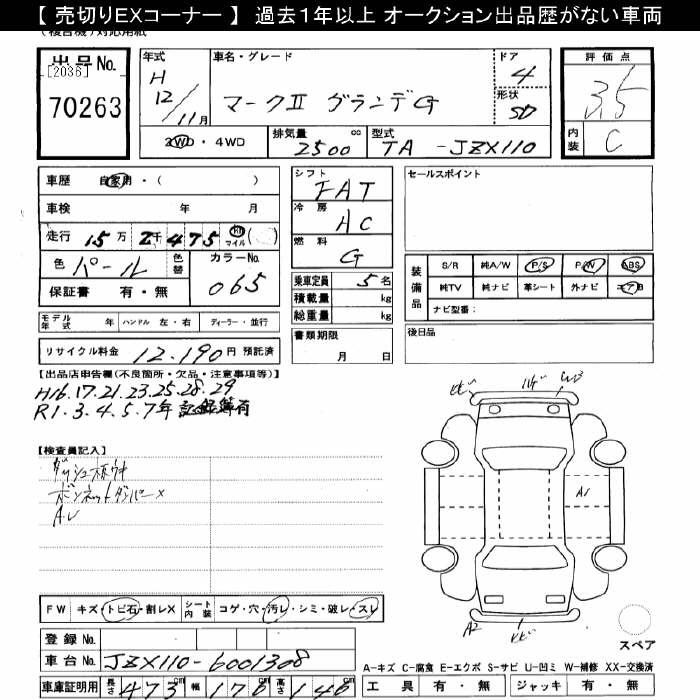 【 売切りEXコーナー 】 過去１年以上 オークション出品歴がない車両
(複合機)対応用紙
出品No.
[2036]
70263
年式
H 12/11月
車名・グレード
マークⅡ グランデG
ドア
4
形状
SD
2WD・4WD
排気量
2500 cc
型式
TA - JZX110
評価点
3.5
内装
C
車歴 自家用・( )
車検 年 月
走行 15万2千475 km マイル ( )
色 パール 色替
カラーNo.
065
保証書 有・無
モデル年式 年 ハンドル 左・右 ディーラー・並行
リサイクル料金 12,190円 預託済
シフト
FAT
冷房
AC
燃料
G
乗車定員 5名
積載量 kg
総重量 kg
書類期限
月 日
セールスポイント
装備品
S/R 純A/W P/S P/W ABS
純TV 純ナビ 革シート 外ナビ エアB
ナビ型番：
後日品
【出品店申告欄(不良箇所・欠品・注意事項等)】
H16.17.21.23.25.28.29
R1.3.4.5.7年 記録簿有
【検査員記入】
ボンネットダンパー×
FW キズ・トビ石・割レX シート内装 コゲ・穴・汚レ・シミ・破レ・スレ
登録No.
車台No. JZX110-6001308
車庫証明用 長さ 473cm 幅 176cm 高さ 146cm
ヒビ
A1
A2
ヒビ
スペア
A-キズ C-腐食 E-エクボ S-サビ U-凹ミ W-補修 XX-交換済
工具 有・無 ジャッキ 有・無